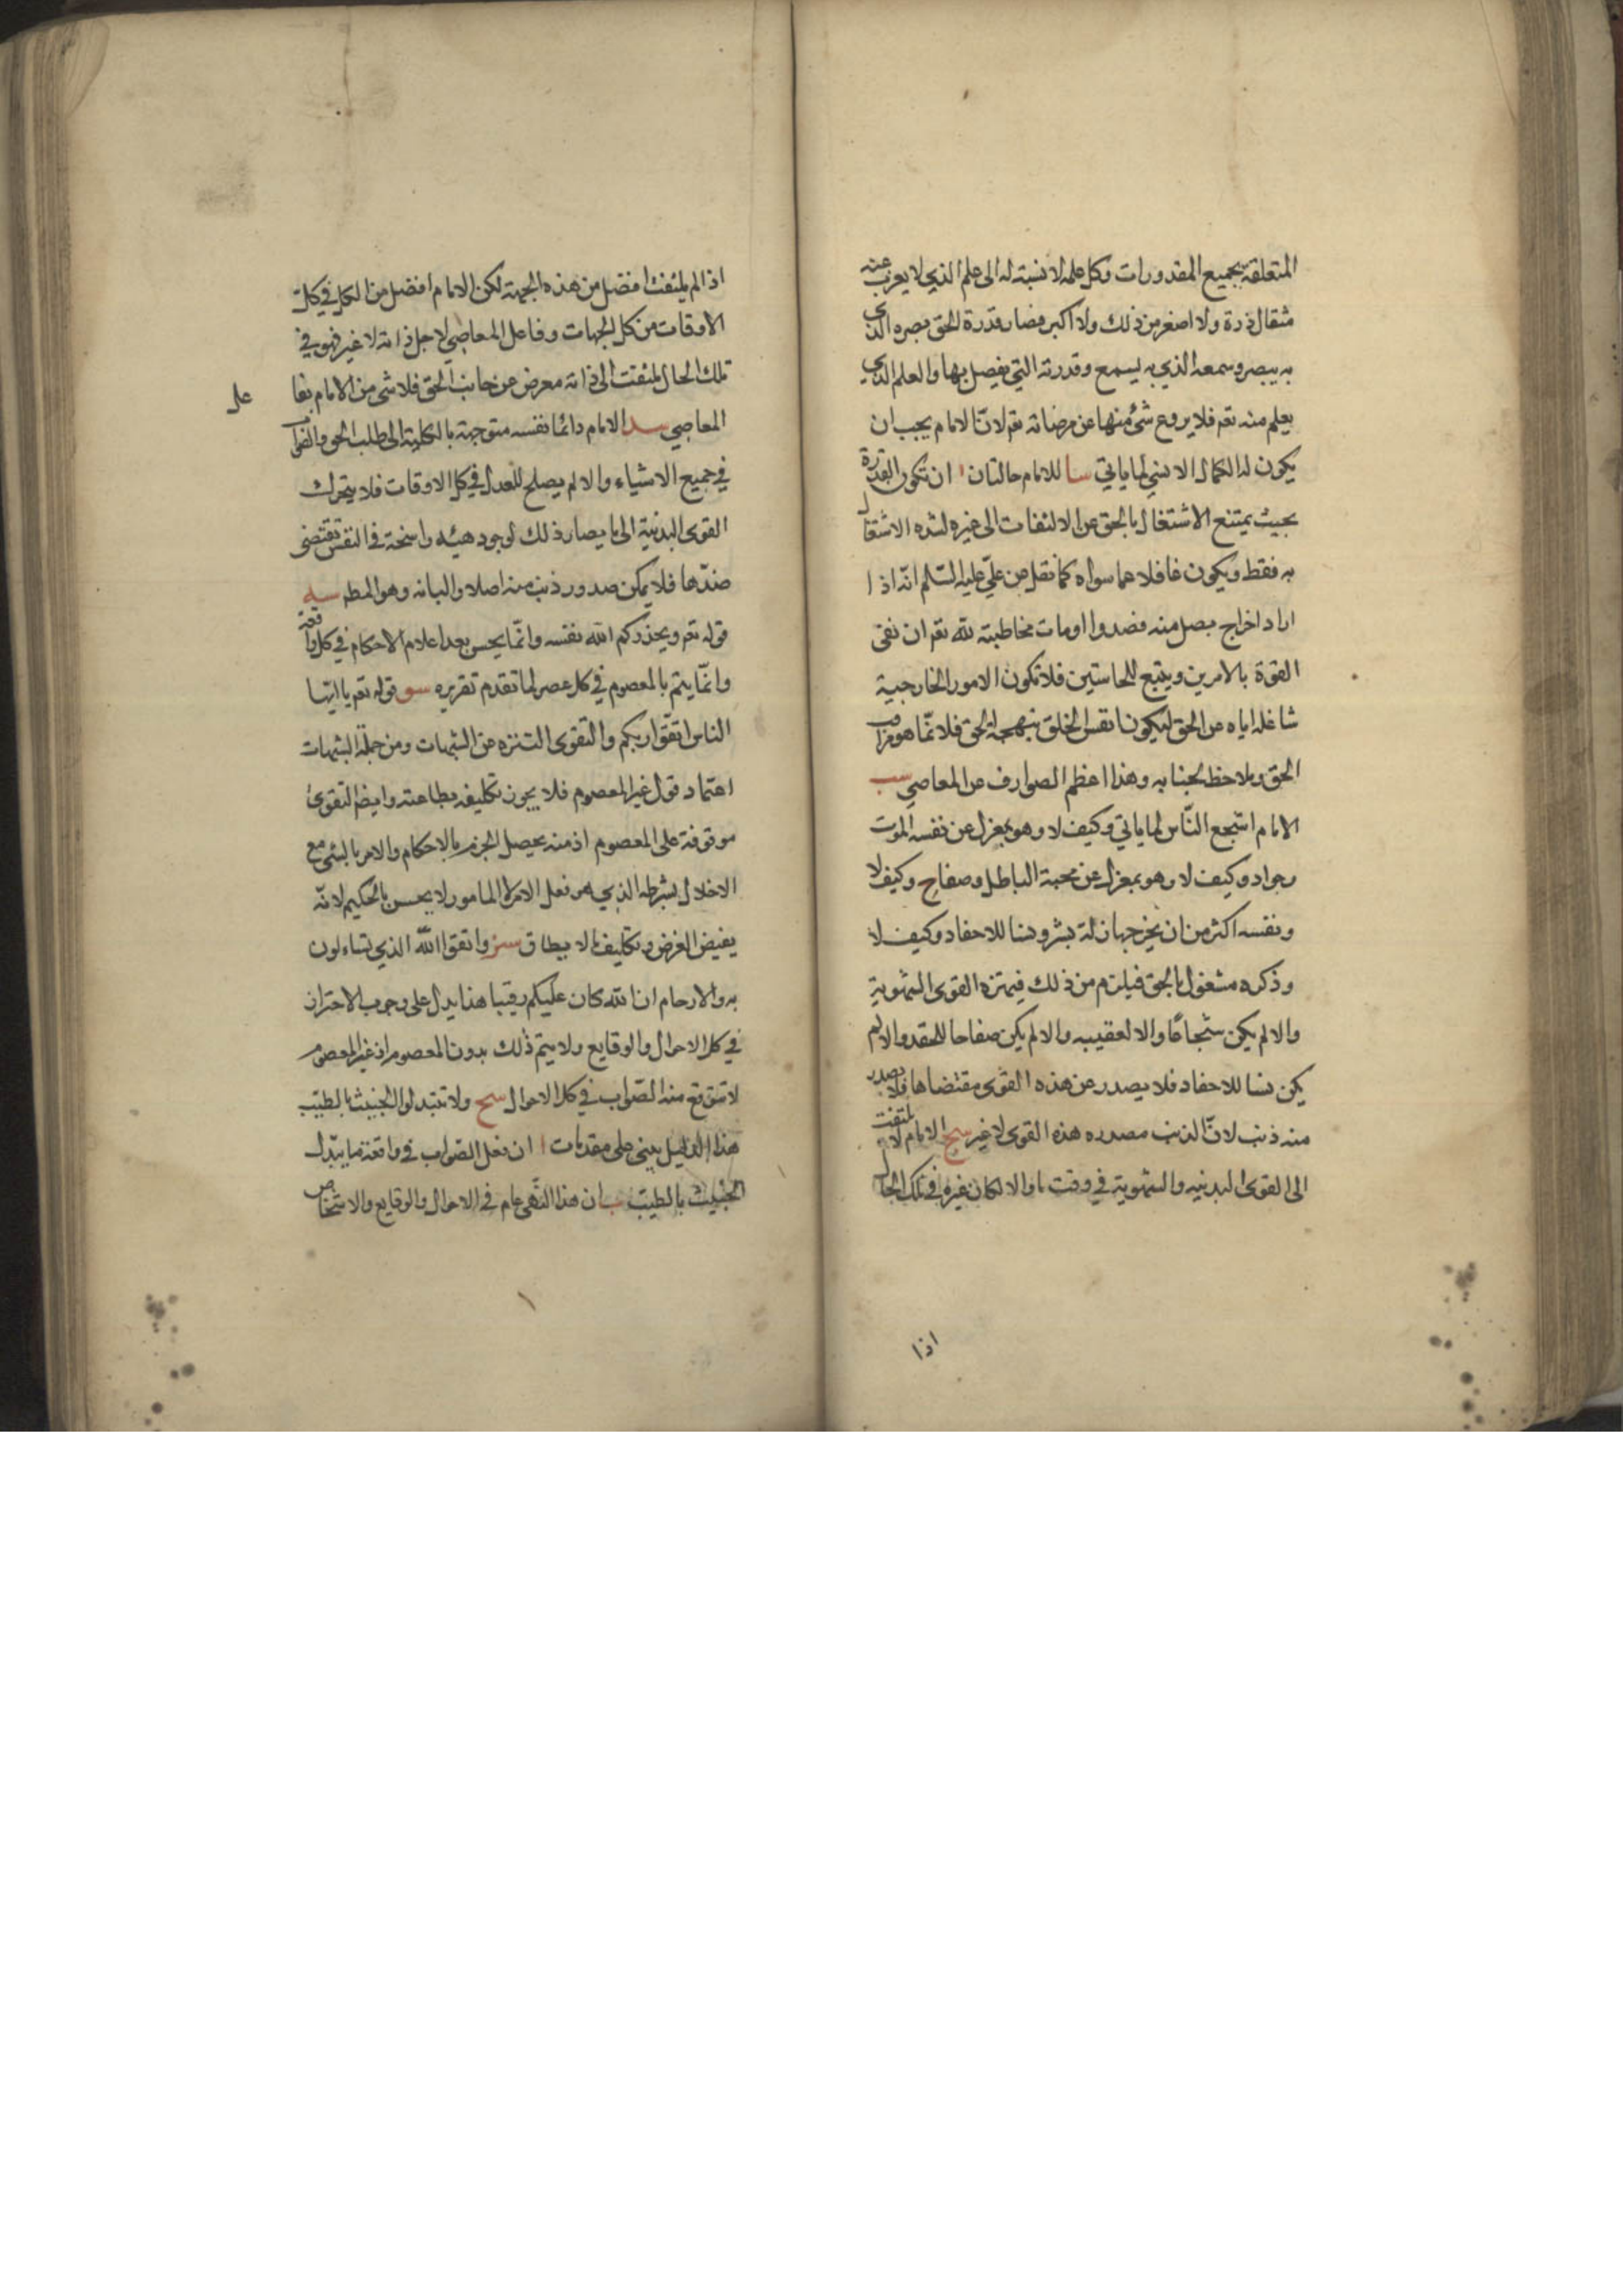 المتعلقة بجميع المقدورات وكل علم لا نسبة له الى علم الذي لا يعزب عنه
مثقال ذرة ولا اصغر من ذلك ولا اكبر فصار قدرة الحق بصره الذي
به يبصر وسمعه الذي به يسمع وقدرته التي يفعل بها والعلم الذي
يعلم منه تعم فلا يروع شئ منها عن مرضاته تعم لان الامام يجب ان
يكون له الكمال الانسي لما ياتي سا للامام حالتان ا ان تكون القدرة
بحيث يمتنع الاشتغال بالحق عن الالتفات الى غيره لشده الاشتغال
به فقط ويكون غافلا عما سواه كما نقل عن علي عليه السلم انه اذا
اراد اخراج نصل منه قصدوا اوقات مخاطبته لله تعم ان تفى
القوة بالامرين ويتبع للحاستين فلا تكون الامور الخارجية
شاغله اياه عن الحق ليكون انفس الخلق ببهجة الحق فلانما هو مراقب
الحق وملاحظ لجنابه وهذا اعظم الصوارف عن المعاصي سب
الامام اشجع الناس لما ياتي وكيف لا وهو بمعزل عن نفسه الموت
وجواد وكيف لا وهو بمعزل عن محبة الباطل وصفاح وكيف لا
ونفسه اكثر من ان يخرجها زلة بشر ونسا للاحقاد وكيف لا
وذكره مشغول بالحق فيلزم من ذلك قهره القوى الشهوية
والا لم يكن شجاعا والا لعقيبه والا لم يكن صفاحا للحقد والا لم
يكن نسا للاحقاد فلا يصدر عن هذه القوى مقتضاها فلا يصدر
منه ذنب لان الذنب مصدره هذه القوى لا غير سح الامام لا يلتفت
الى القوى البدنيه والشهوية في وقت ما والا لكان غيره في تلك الحال
اذا
اذا لم يلتفت افضل من هذه الجهة لكن الامام افضل من الكل في كل
الاوقات من كل الجهات وفاعل المعاصي لاجل ذاته لا غير فهو في
تلك الحال ملتفت الى ذاته معرض عن جانب الحق فلا شى من الامام بفا
عل
المعاصي سد الامام دائما نفسه متوجهة بالكلية الى طلب الحق والصواب
في جميع الاشياء والا لم يصلح للعدل في كل الاوقات فلا يتحرك
القوى البدنية الى ما يضار ذلك لوجود هيئه راسخة في النفس تقتضى
ضدها فلا يمكن صدور ذنب منه اصلا والبانه وهو المطه سه
قوله تعم ويحذركم الله نفسه وانما يحسن بعد اعلام الاحكام في كل واقعة
وانما يتم بالمعصوم في كل عصر لما تقدم تقريره سو قوله تعم يا ايها
الناس اتقوا ربكم والتقوى التنزه عن الشبهات ومن جملة الشبهات
اعتماد قول غير المعصوم فلا يجوز تكليفه بطاعته وايضا التقوى
موقوفة على المعصوم اذ منه يحصل الجزم بالاحكام والامر بالشئ مع
الاخلال بشرطه الذي هو من فعل الامر لا المامور لا يحسن بالحكيم لانه
يقيض الغرض وتكليف ما لا يطاق سز واتقوا الله الذي تساءلون
به والارحام ان الله كان عليكم رقيبا هذا يدل على وجوب الاحتراز
في كل الاحوال والوقايع ولا يتم ذلك بدون المعصوم اذ غير المعصوم
لا تتوقع منه الصواب في كل الاحوال سح ولا تتبدلوا الخبيث بالطيب
هذا الدليل يبنى على مقدمات ا ان فعل الصواب في واقعة ما يبدل
الخبيث بالطيب ب ان هذا النهى عام في الاحوال والوقايع والاشخاص